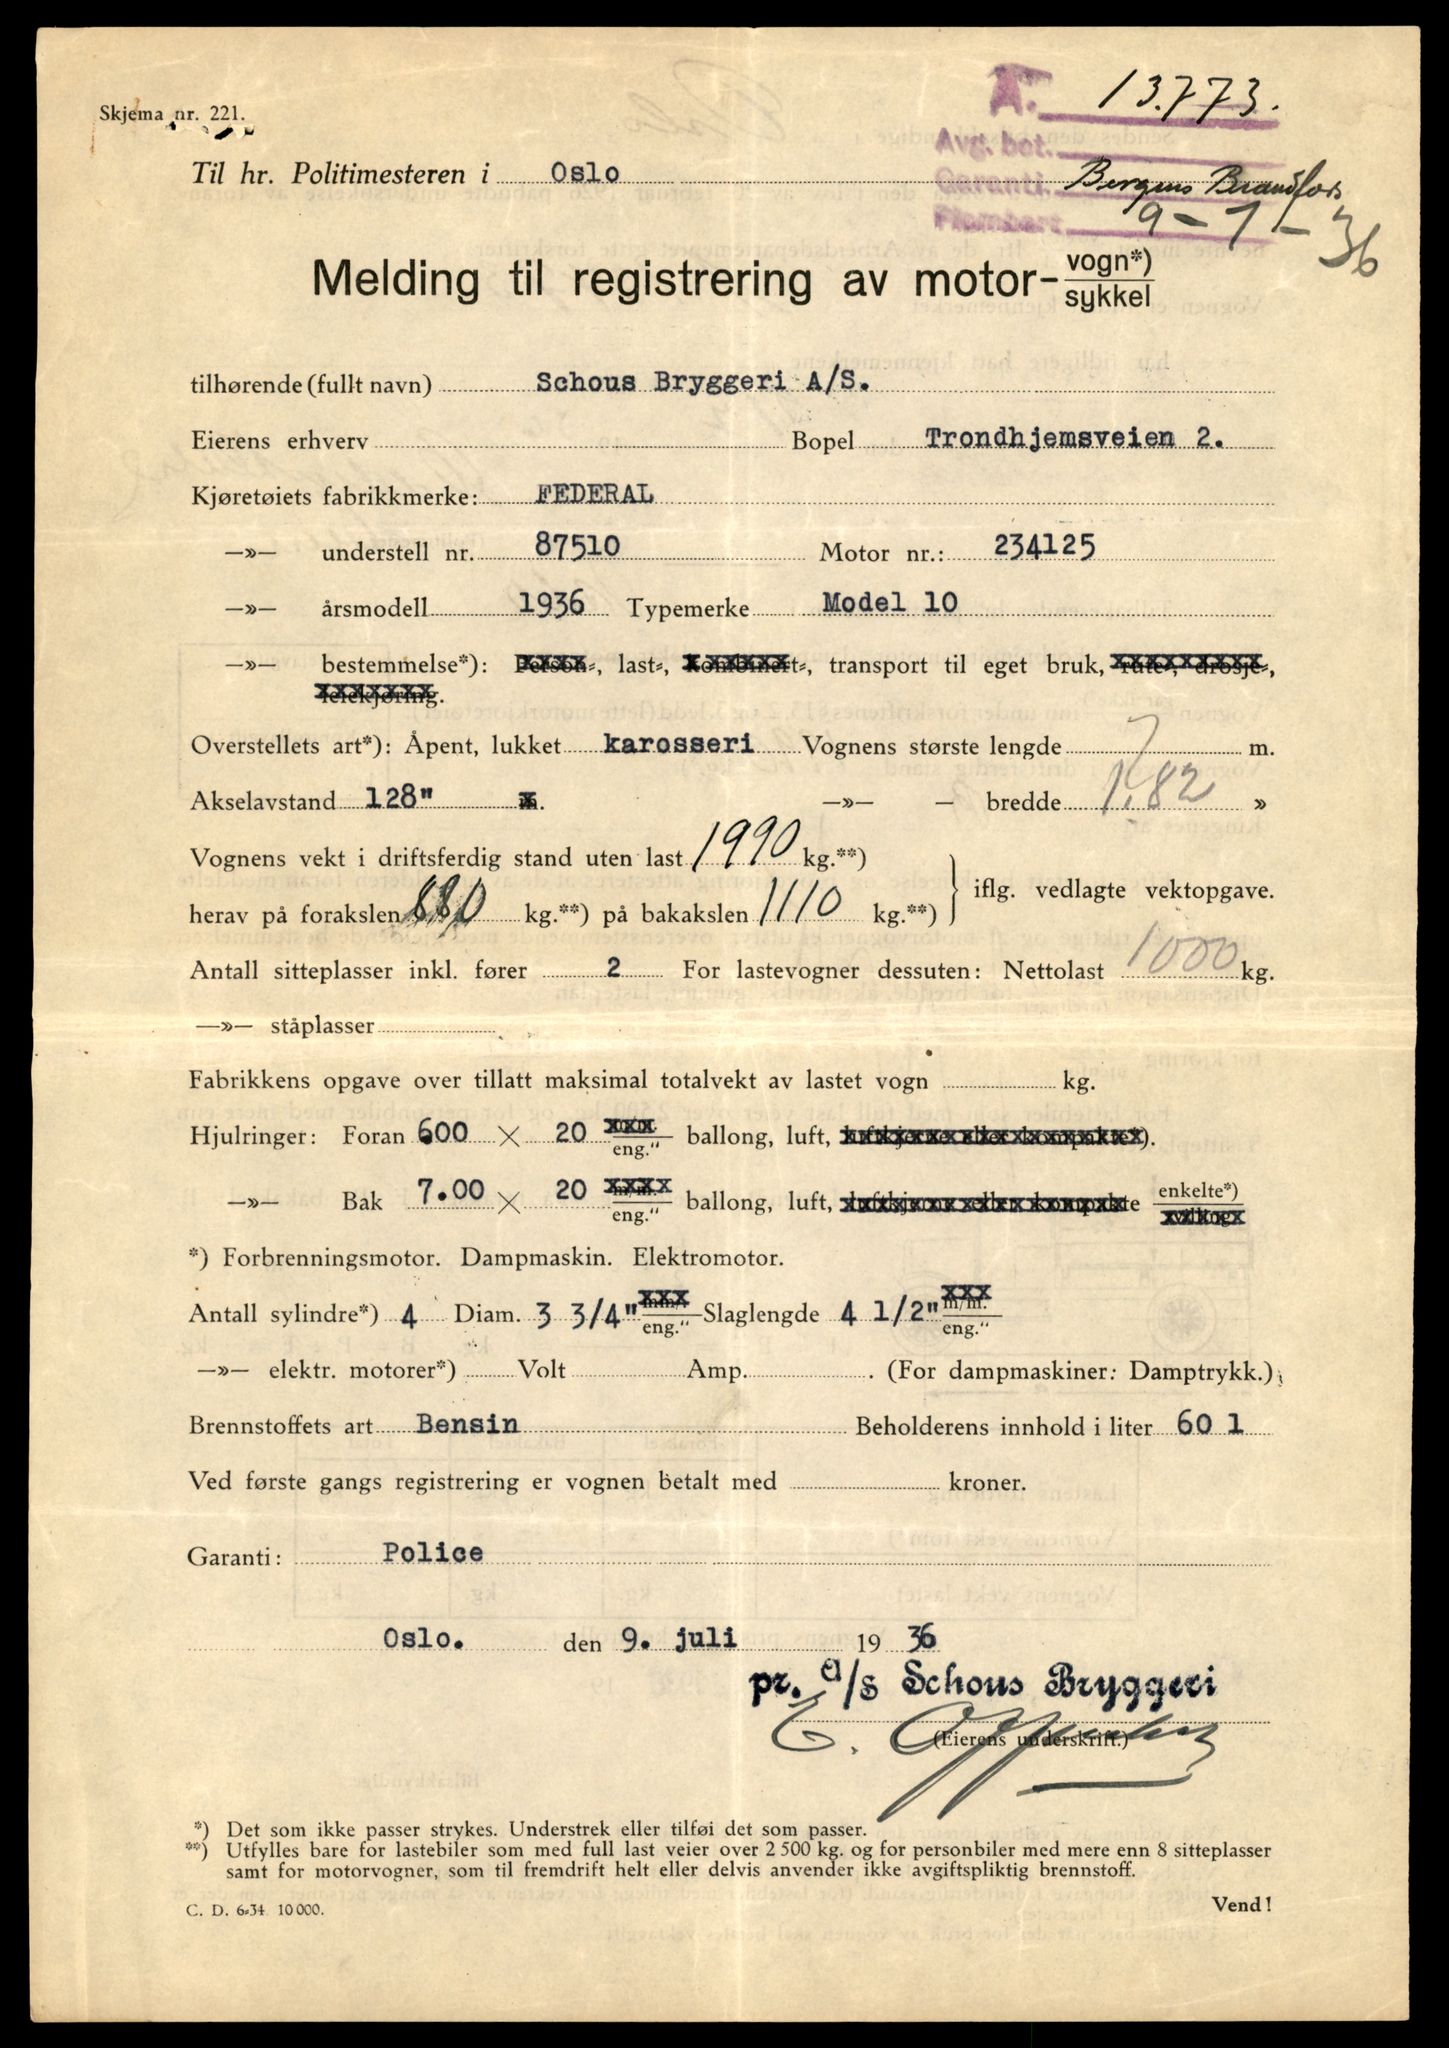 Skjema nr. 221.
A. 13.773.
Avg. bet.
Til hr. Politimesteren i Oslo
Garanti. Bergens Brandfors
Plombert 9-7-36
Melding til registrering av motor-vogn*)
sykkel
tilhørende (fullt navn) Schous Bryggeri A/S.
Eierens erhverv Bopel Trondhjemsveien 2.
Kjøretøiets fabrikkmerke: FEDERAL
—»— understell nr. 87510 Motor nr.: 234125
—»— årsmodell 1936 Typemerke Model 10
—»— bestemmelse*): Person-, last-, kombinert-, transport til eget bruk, rute-, drosje-,
leiekjøring.
Overstellets art*): Åpent, lukket karosseri Vognens største lengde m.
Akselavstand 128" m. —»— — bredde 1,82 »
Vognens vekt i driftsferdig stand uten last 1990 kg.**)
herav på forakslen 880 kg.**) på bakakslen 1110 kg.**) iflg. vedlagte vektopgave.
Antall sitteplasser inkl. fører 2 For lastevogner dessuten: Nettolast 1000 kg.
—»— ståplasser
Fabrikkens opgave over tillatt maksimal totalvekt av lastet vogn kg.
Hjulringer: Foran 6.00 × 20 m/m. eng." ballong, luft, luftkjerne eller kompakte*).
—»— Bak 7.00 × 20 m/m. eng." ballong, luft, luftkjerne eller kompakte enkelte*)
tvilling
*) Forbrenningsmotor. Dampmaskin. Elektromotor.
Antall sylindre*) 4 Diam. 3 3/4" mm. eng." Slaglengde 4 1/2" m/m. eng."
—»— elektr. motorer*) Volt Amp. . (For dampmaskiner: Damptrykk.)
Brennstoffets art Bensin Beholderens innhold i liter 60 l
Ved første gangs registrering er vognen betalt med kroner.
Garanti: Police
Oslo. den 9. juli 19 36
pr. a/s Schous Bryggeri
E.
(Eierens underskrift.)
*) Det som ikke passer strykes. Understrek eller tilføi det som passer.
**) Utfylles bare for lastebiler som med full last veier over 2 500 kg. og for personbiler med mere enn 8 sitteplasser
samt for motorvogner, som til fremdrift helt eller delvis anvender ikke avgiftspliktig brennstoff.
C. D. 6-34. 10 000.
Vend!